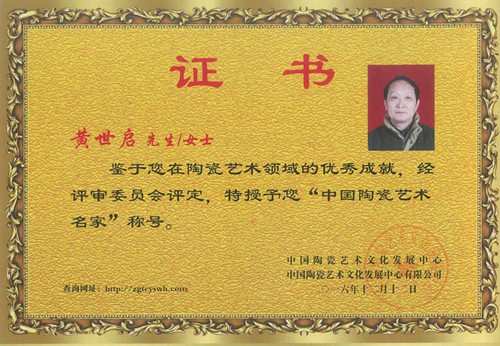 证 书
黄世启 先生/女士
鉴于您在陶瓷艺术领域的优秀成就，经
评审委员会评定，特授予您“中国陶瓷艺术
名家”称号。
中国陶瓷艺术文化发展中心
中国陶瓷艺术文化发展中心有限公司
查询网址：http://zgtcyswh.com
二〇一六年十二月十二日